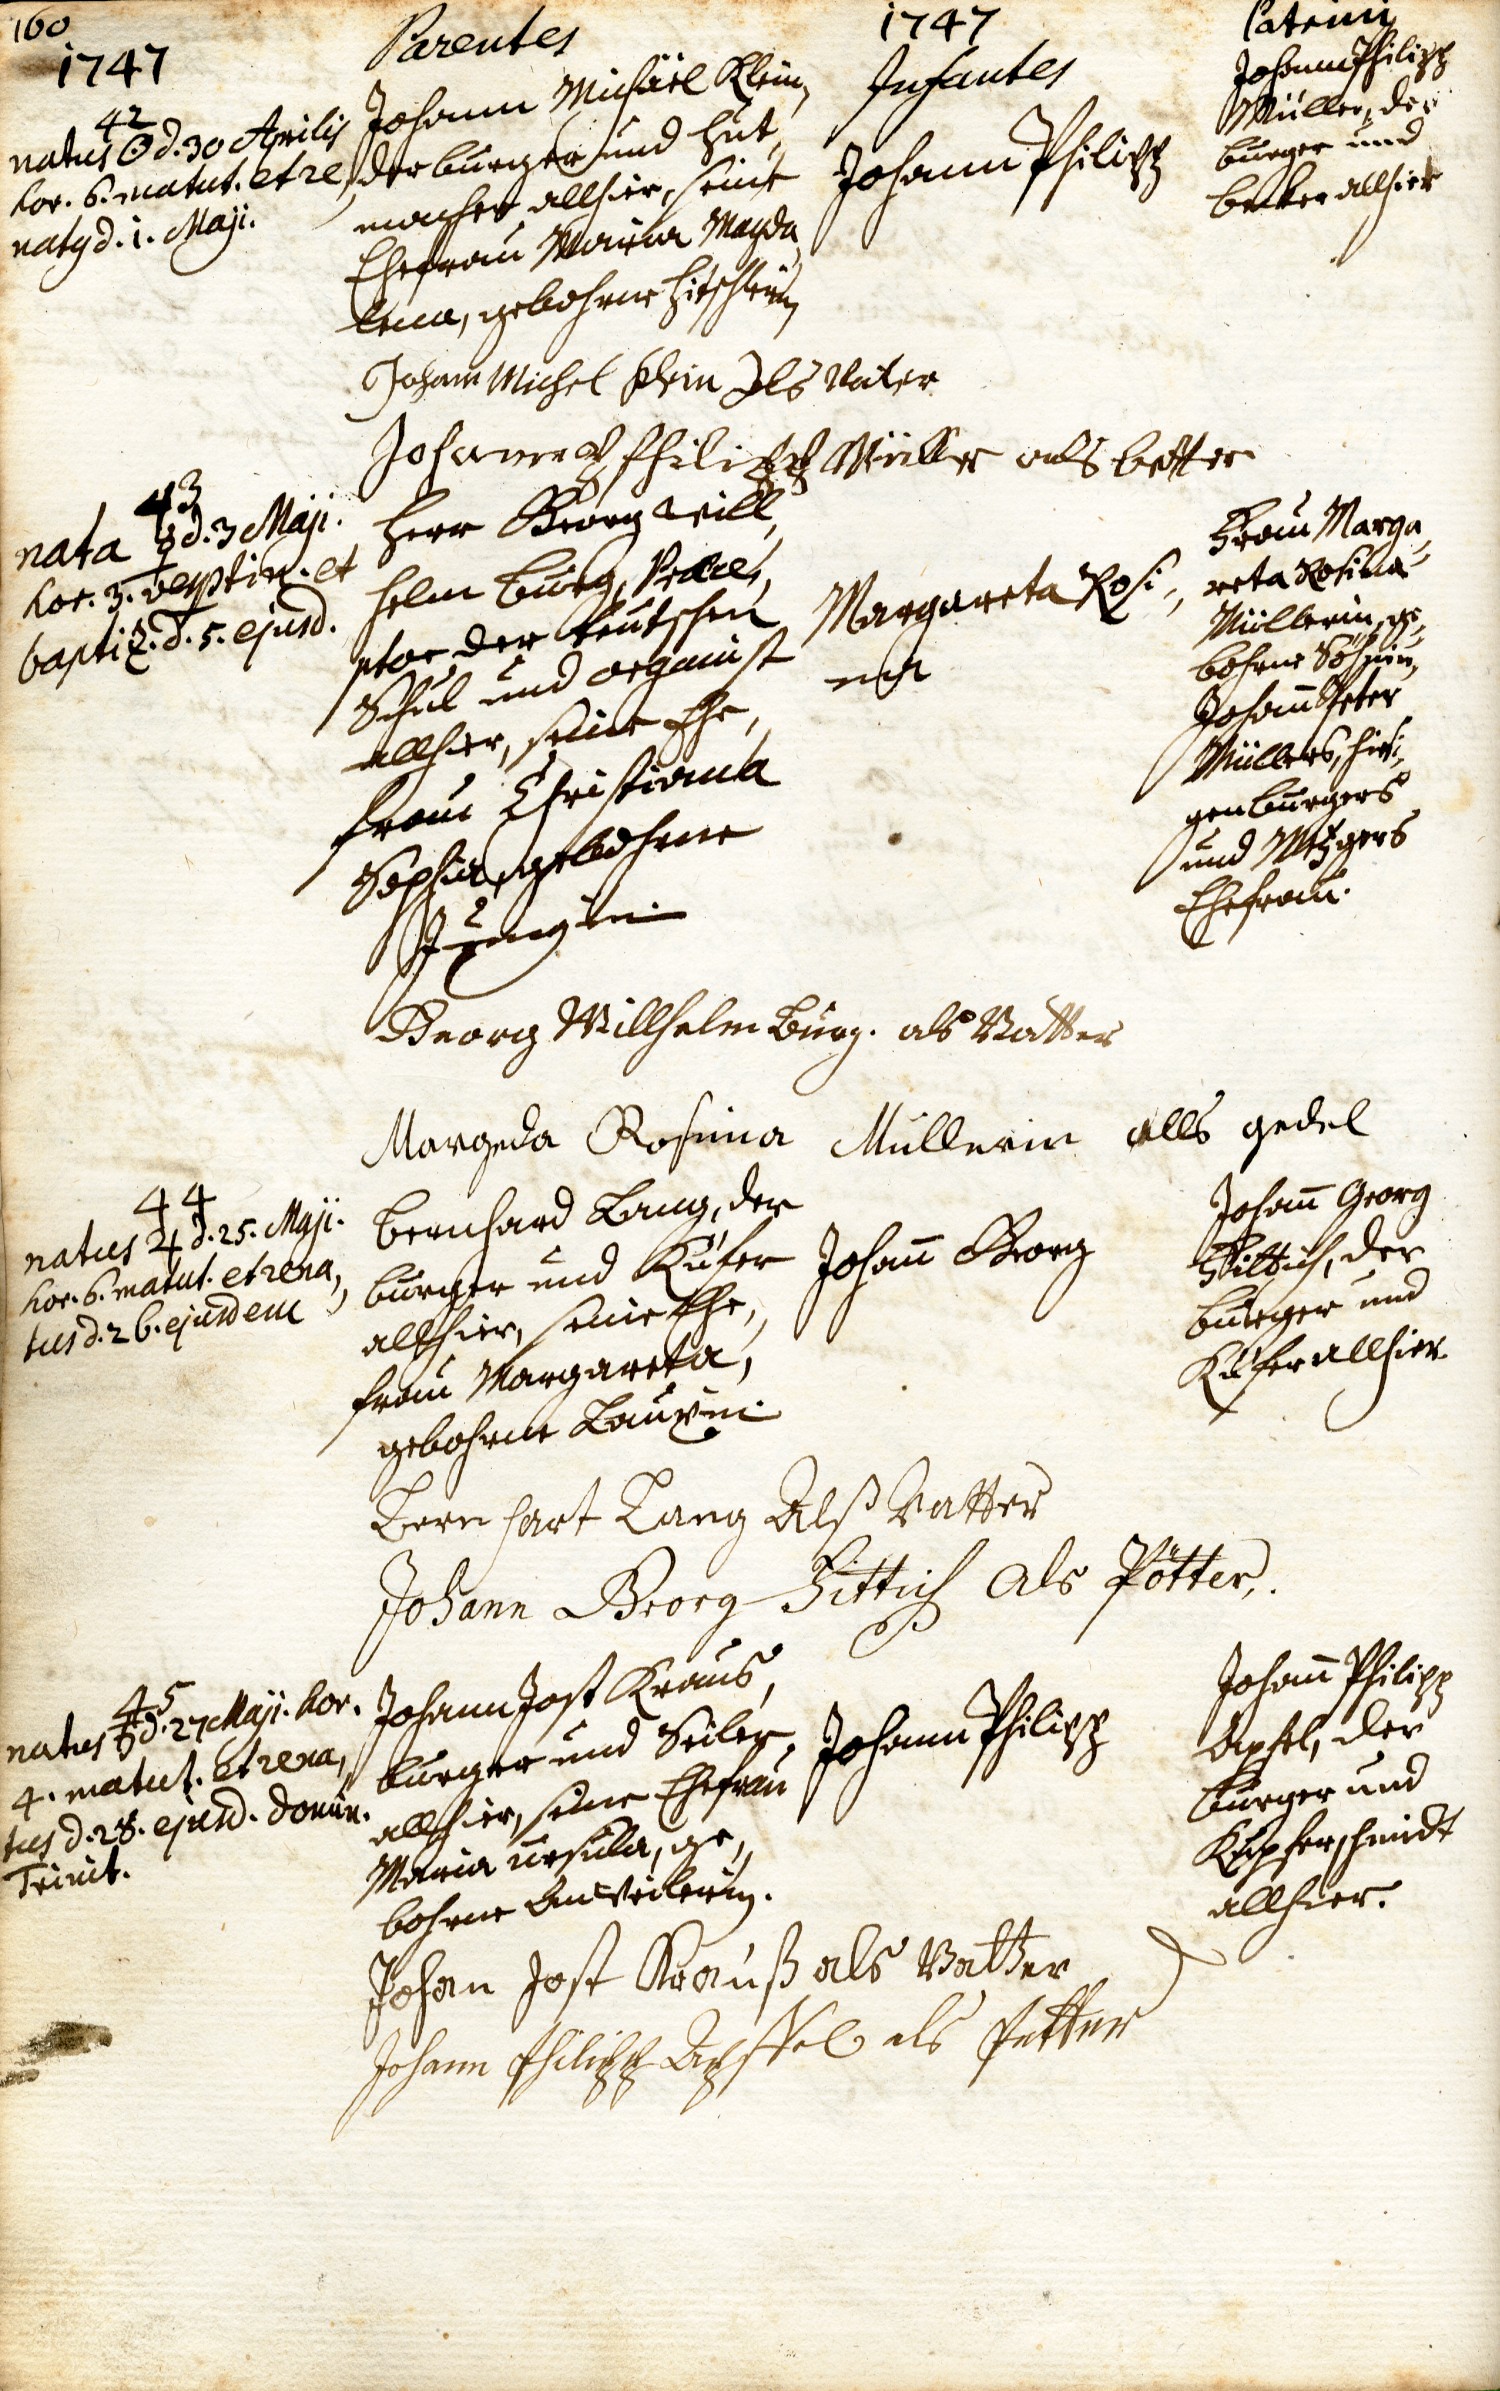 160
1747
Parentes
1747
Infantes
Patrini
42
natus ☉ d. 30 Aprilis
hor. 6. matut. et re,,
natq d. 1. Maji.
Johann Michäel Klein,
der burger und Hut,,
macher allhier, seine
Ehefrau Maria Magda,,
lena, gebohrne
Johann Philipp
Johann Philipp
Müller, der
burger und
becker allhier
Johann Michel Klein Als Vater
Johannes Philipp Müller als better
43
nata ☿ d. 3 Maji.
hor. 3. vespertin. et
baptiz. d. 5. ejusd.
Herr Georg Will,,
helm Burg, Præce,,
ptor der teutschen
Schul und organist
allhier, seine Ehe,,
frau Christiana
Sophia, gebohrne
Jungin.
Margareta Rosi,,
na
Frau Marga,,
reta Rosina
Müllerin, ge,,
bohrne
Johann Peter
Müllers, hiesi,,
gen burgers
und Metzgers
Ehefrau.
Georg Willhelm Burg. als Vatter
Margeda Rosina Müllerin alls gedel
44
natus ♃ d. 25. Maji.
hor. 6. matut. et rena,,
tus d. 26. ejusdem
Bernhard Lang, der
burger und Küfer
allhier, seine Ehe,,
frau Margareta,
gebohrne Lauxin.
Johann Georg
Johann Georg
Zittich, der
burger und
Küfer allhier
Bernhart Lang Alß Vatter
Johann Georg Zittich Als Pötter,.
45
natus ♄ d. 27 Maji. hor.
4. matut. et rena,,
tus d. 28. ejusd. Domin.
Trinit.
Johann Jost Kraus,
burger und Seiler
allhier, seine Ehefrau
Maria Ursula, ge,,
bohrne Anweilerin.
Johann Philipp
Johann Philipp
Apfel, der
burger und
Kupferschmidt
allhier.
Johan Jost Krauß als Vatter
Johann Philipp Apffel als Petter